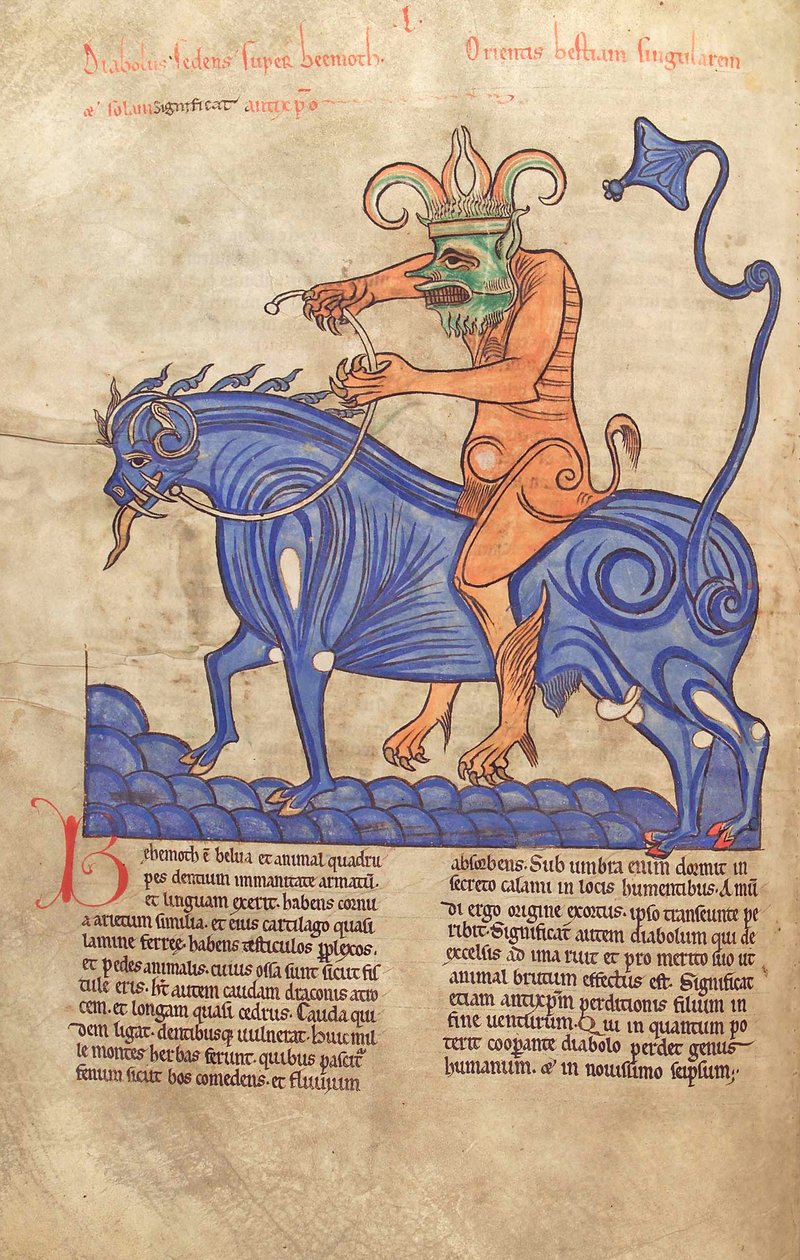 Diabolus sedens super beemoth.
Orientis bestiam singularem
& solam significat antixp̄o
Behemoth ē belua et animal quadru
pes dentium immanitate armatū.
et linguam exerit. habens cornu
a arietum similia. et eius cartilago quasi
lamine ferreę. habens testiculos pplexos.
et pedes animalis. cuius ossa sunt sicut fis
tule eris. ht autem caudam draconis atro
cem. et longam quasi cedrus. Cauda qui
dem ligat. dentibusq; uulnerat. huic mil
le montes herbas ferunt. quibus pascit᷑
fenum sicut bos comedens. et fluuium
absorbens. Sub umbra enim dormit in
secreto calami in locis humentibus. A mū
di ergo origine exortus. ipso transeunte pe
ribit. Significat autem diabolum qui de
excelsis ad ima ruit et pro merito suo ut
animal brutum effectus est. Significat
etiam antixp̄m perditionis filium in
fine uenturum. Qui in quantum po
terit coopante diabolo perdet genus
humanum. & in nouissimo seipsum;